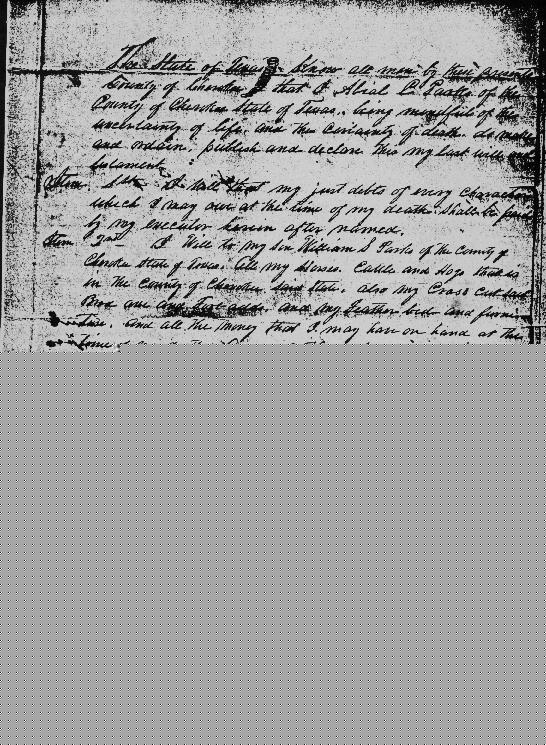 The State of Texas Know all men by these presents
County of Cherokee that I Alial L. Parks of the
County of Cherokee State of Texas, being mindful of the
uncertainty of life, and the certainty of death, do make
and ordain, publish and declare this my last will and
testament.
Item 1st I will that my just debts of every character
which I may owe at the time of my death shall be paid
by my executor herein after named.
Item 2nd I Will to my Son William S Parks of the County of
Cherokee State of Texas. All my Horses. Cattle and Hogs that is
in the County of Cherokee said State, also my Cross cut saw
one and my Feather bed and furni-
ture. and all the money that I may have on hand at the
time of